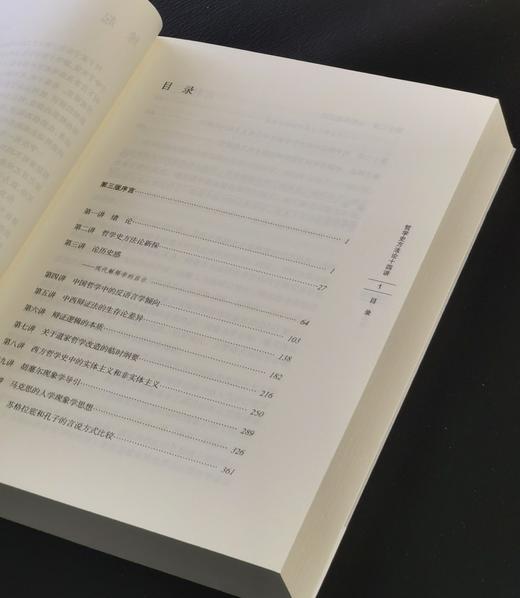 目 录
第三版序言 1
第一讲 绪 论 1
第二讲 哲学史方法论新探 27
第三讲 论历史感
第四讲 中国哲学中的反语言学倾向 64
第五讲 中西辩证法的生存论差异 103
第六讲 辩证逻辑的本质 138
第七讲 关于道家哲学改造的临时纲要 182
第八讲 西方哲学史中的实体主义和非实体主义 216
九讲 胡塞尔现象学导引 250
讲 马克思的人学现象学思想 289
苏格拉底和孔子的言说方式比较 326
361
哲学史方法论十四讲
1
目 录